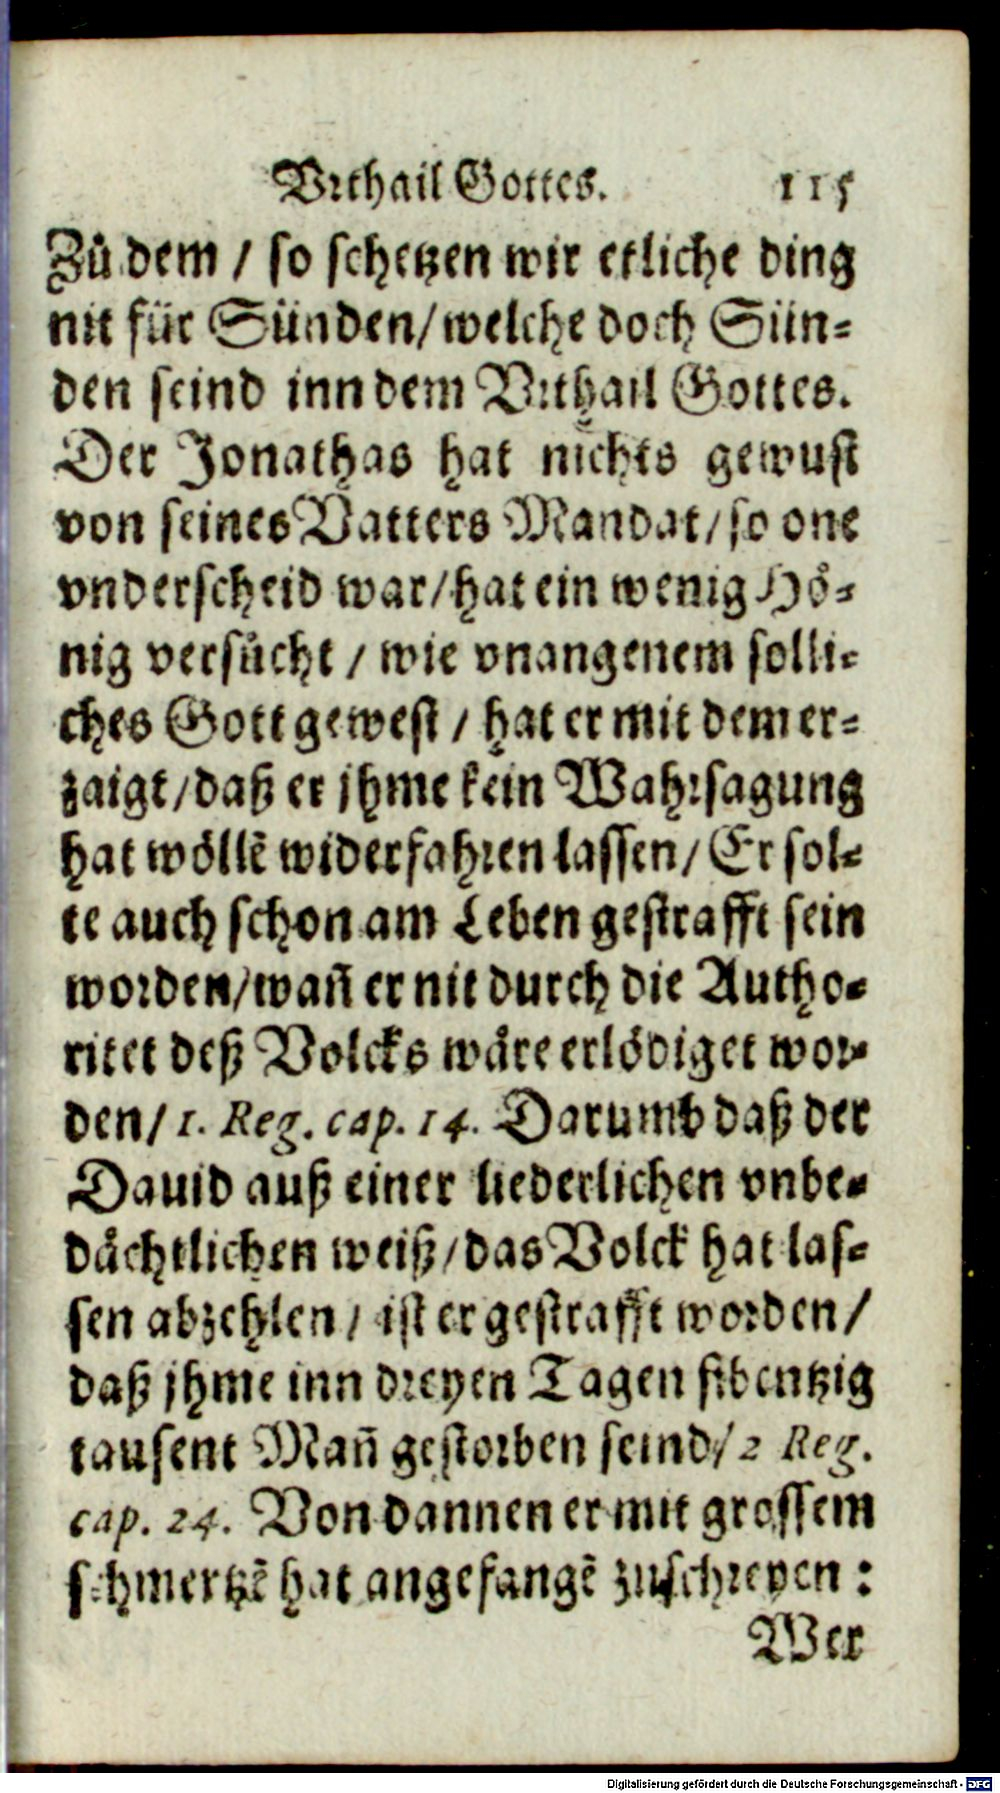 Vrthail Gottes. 115
Zů dem / so schetzen wir etliche ding
nit für Sünden/ welche doch Sün-
den seind inn dem Vrthail Gottes.
Der Jonathas hat nichts gewust
von seines Vatters Mandat/ so one
vnderscheid war/ hat ein wenig Hö-
nig versůcht / wie vnangenem solli-
ches Gott gewest / hat er mit dem er-
zaigt/ daß er jhme kein Wahrsagung
hat wöllē widerfahren lassen/ Er sol-
te auch schon am Leben gestrafft sein
worden/ wan̄ er nit durch die Autho-
ritet deß Volcks wäre erlödiget wor-
den/ 1. Reg. cap. 14. Darumb daß der
Dauid auß einer liederlichen vnbe-
dächtlichen weiß/ das Volck hat las-
sen abzehlen / ist er gestrafft worden /
daß jhme inn dreyen Tagen sibentzig
tausent Man̄ gestorben seind/ 2 Reg.
cap. 24. Von dannen er mit grossem
schmertzē hat angefangē zuschreyen :
Wer
Digitalisierung gefördert durch die Deutsche Forschungsgemeinschaft - DFG